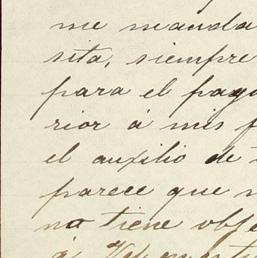 me manda
sita, siempre
para el pago
rior á mis
el auxilio de
parece que
no tiene obje
á